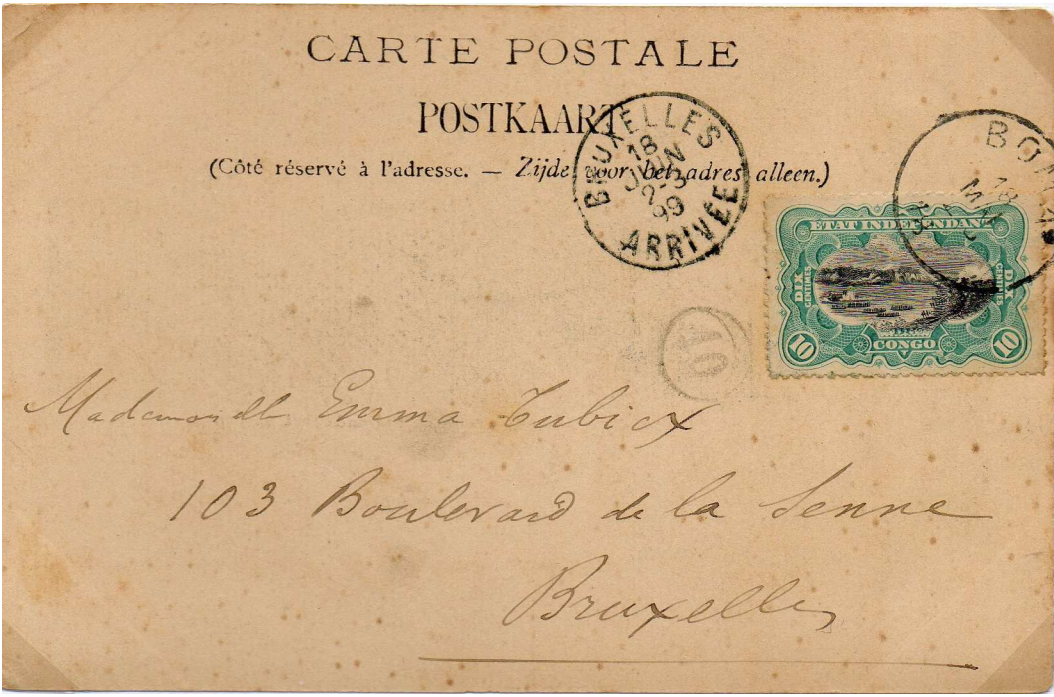 CARTE POSTALE
POSTKAART
(Côté réservé à l'adresse. — Zijde voor het adres alleen.)
BRUXELLES
18
JUIN
2-3
99
ARRIVÉE
BOMA
18
MAI
ETAT INDEPENDANT
DIX
CENTIMES
DIX
CENTIMES
10
CONGO
10
10
Mademoiselle Emma Tubicx
103 Boulevard de la Senne
Bruxelles